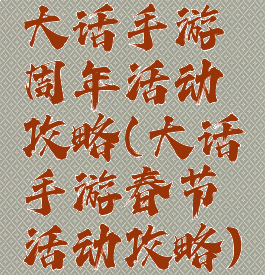 大话手游
周年活动
攻略(大话
手游春节
活动攻略)